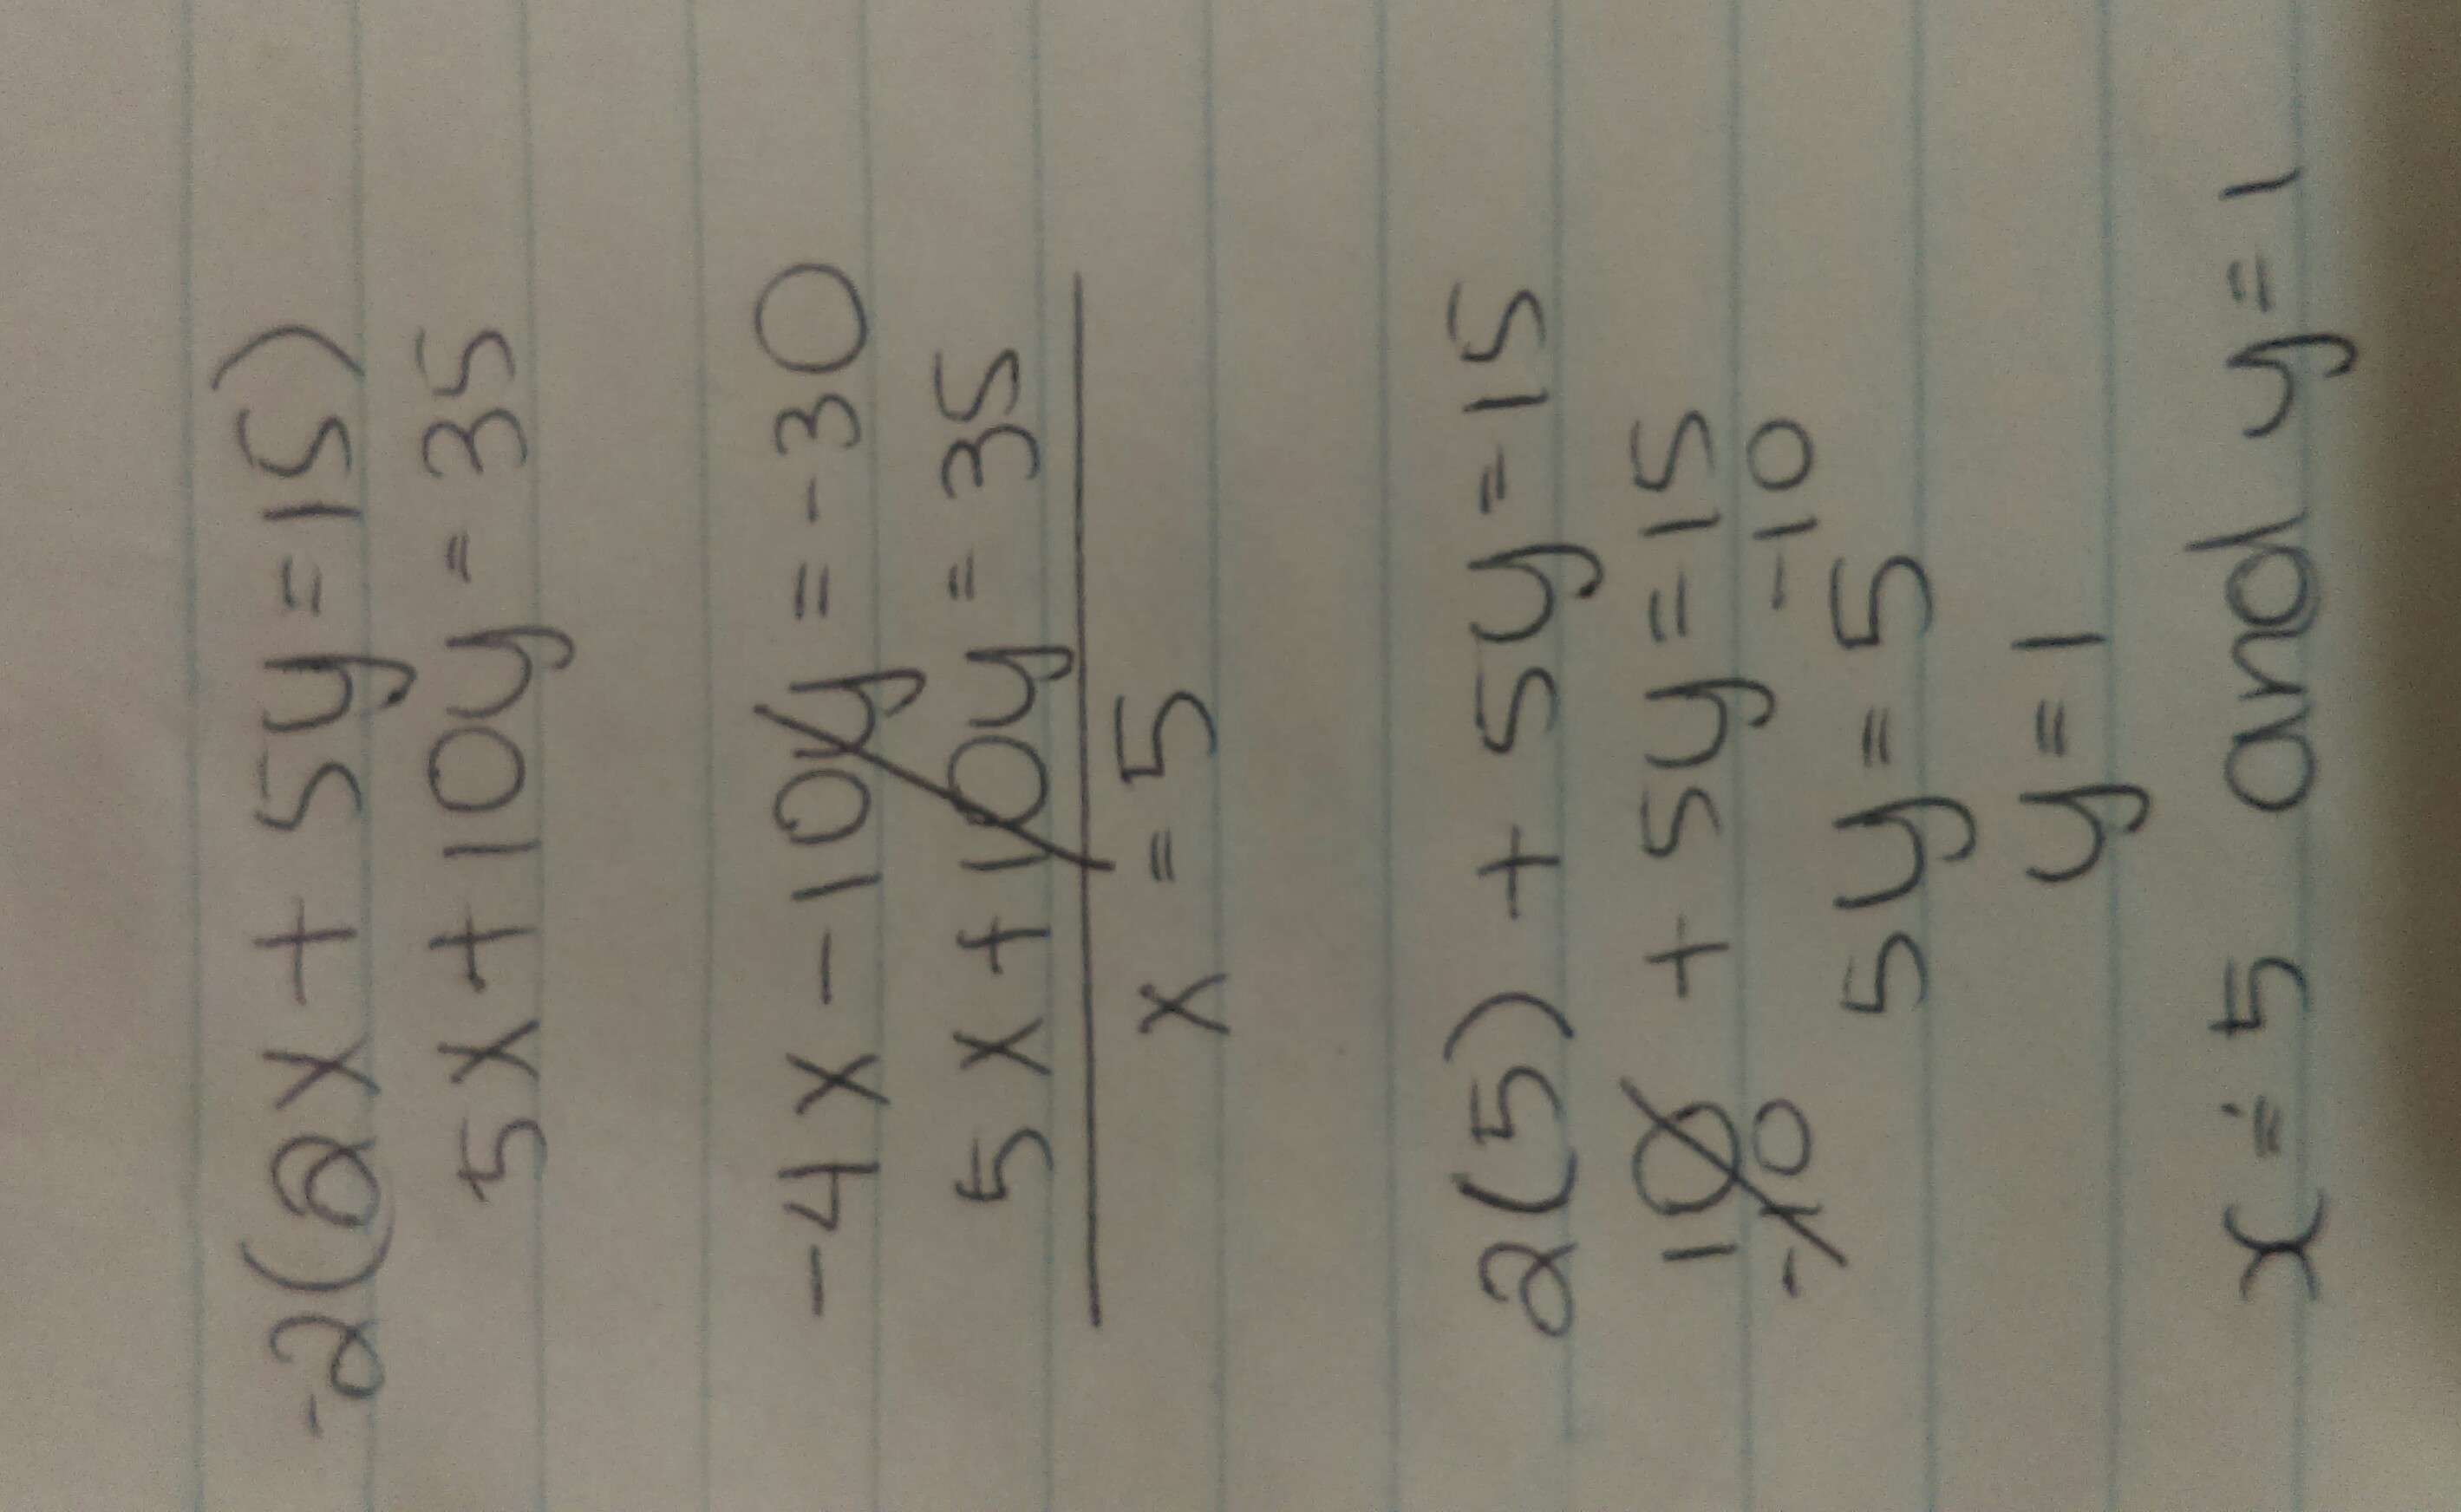 -2(2x + 5y = 15)
5x + 10y = 35
-4x - 10y = -30
5x + 10y = 35
x = 5
2(5) + 5y = 15
10 + 5y = 15
-10 -10
5y = 5
y = 1
x = 5 and y = 1